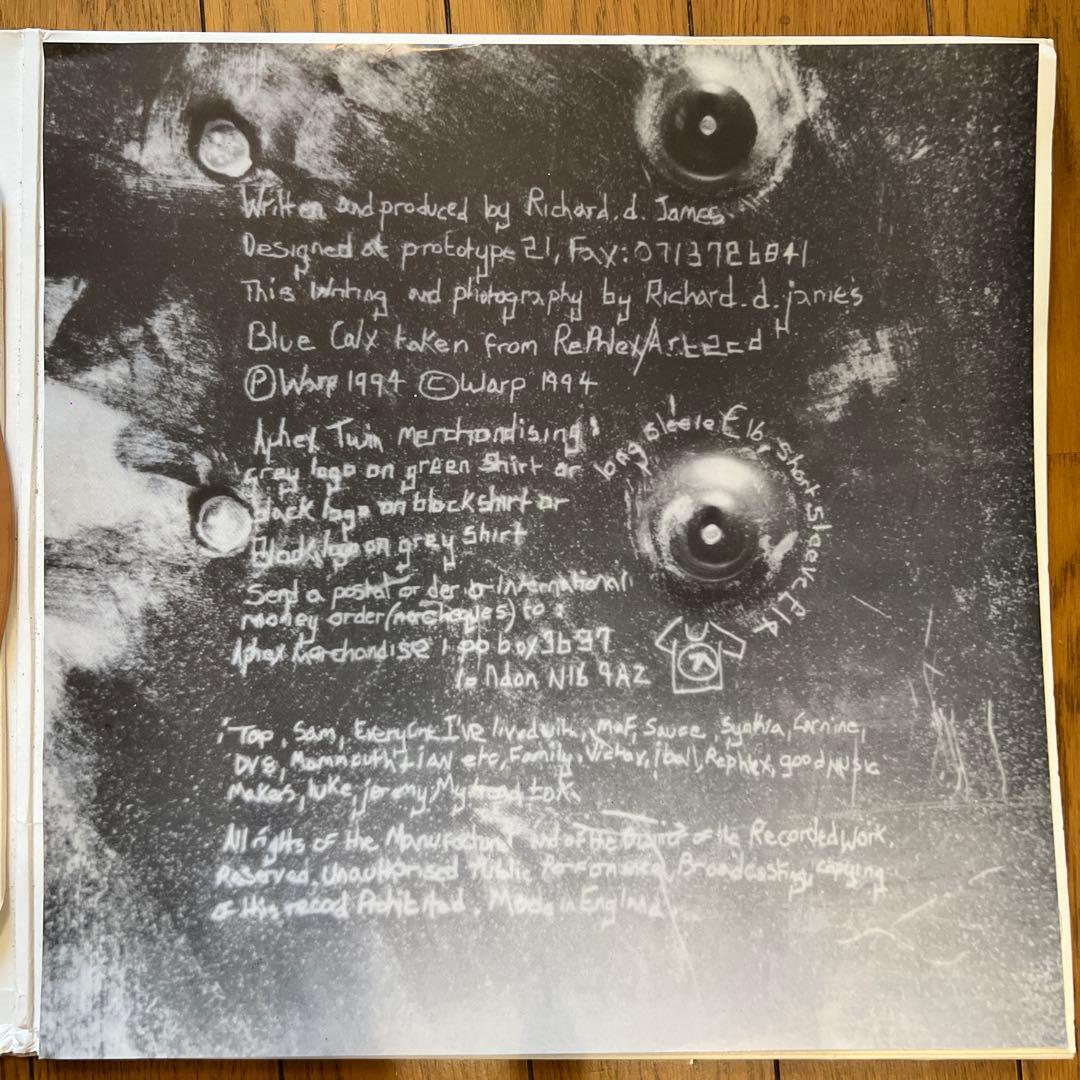 Written and produced by Richard. d. James
Designed at prototype 21, Fax: 071 3726841
This Writing and photography by Richard. d. james
Blue Calx taken from RePhlex/Art 2cd
Ⓟ Warp 1994 © Warp 1994
Aphex Twin merchandising:
grey logo on green shirt or
black logo on black shirt or
Black logo on grey shirt
long sleeve £16, short sleeve £14
Send a postal order or International
money order (no cheques) to:
Aphex Merchandise, po box 3697
london N16 9AZ
Top, Sam, Everyone I've lived with, Sauce
etc, Family, Rephlex, good MUSIC
Makers, luke, jeremy, My
All rights of the Manufacturer and of the of the Recorded Work.
Reserved, Unauthorised Public Performance, Broadcasting, copying
of this record Prohibited. Made in England